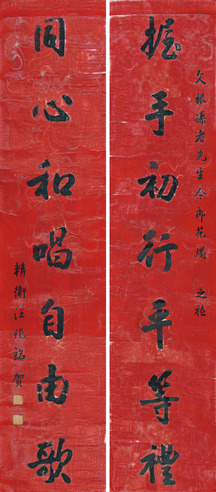 文根謙老先生令郎花燭 之禧
握手初行平等禮
同心和唱自由歌
精衛汪兆銘賀